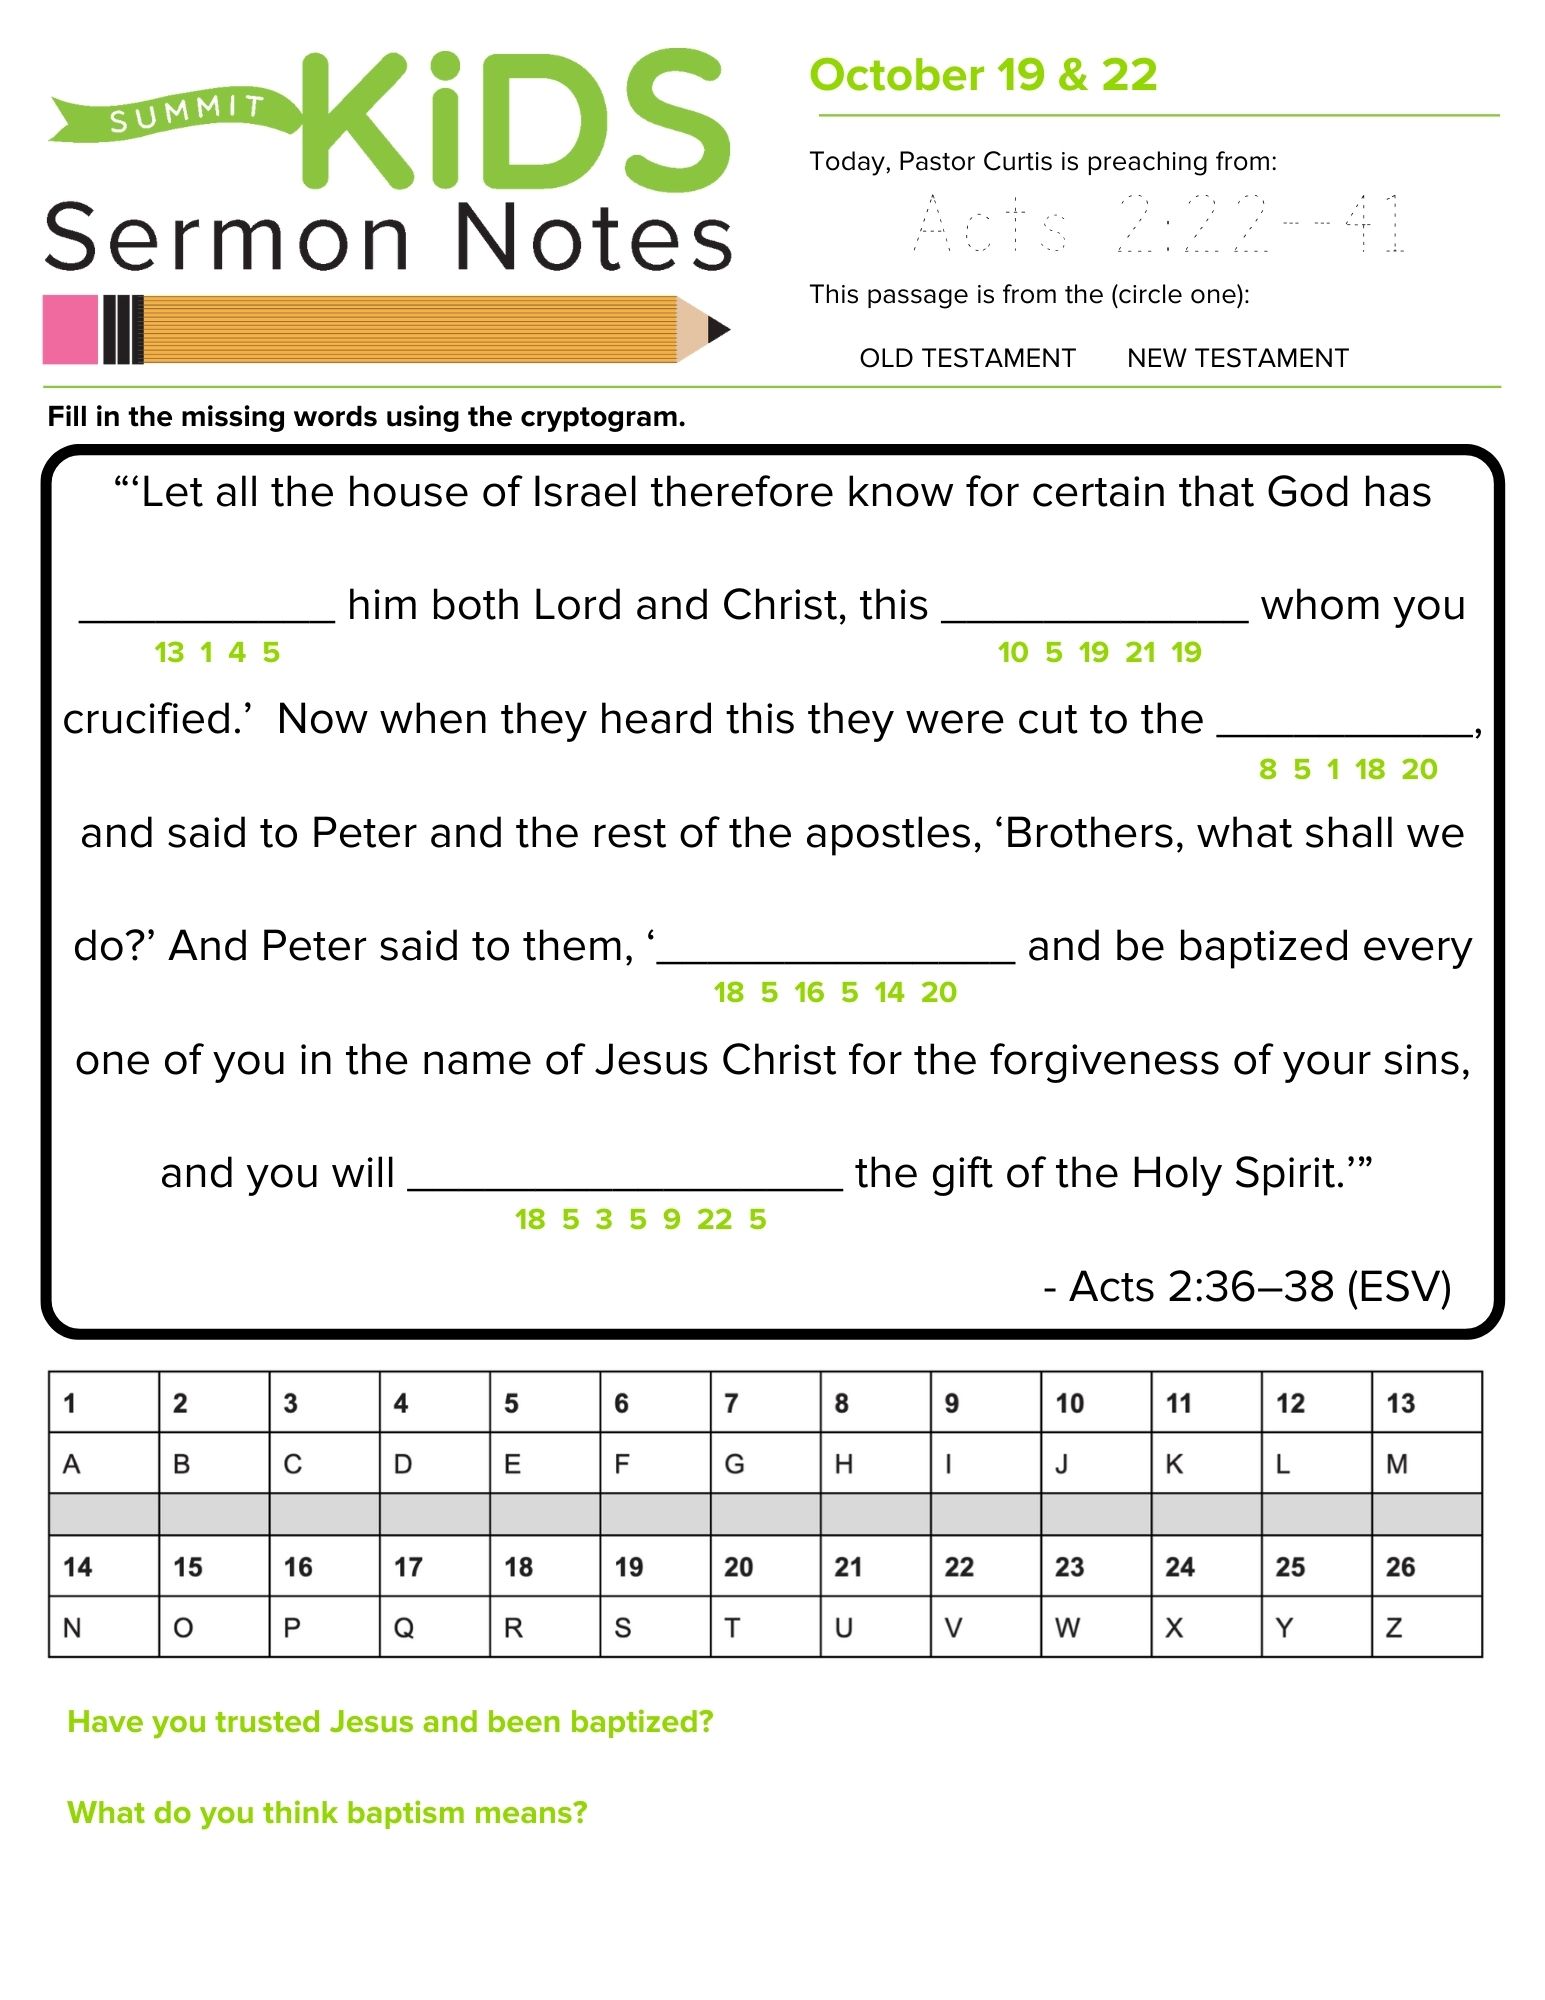 SUMMIT
KiDS
Sermon Notes
October 19 & 22
Today, Pastor Curtis is preaching from:
Acts 2:22--41
This passage is from the (circle one):
OLD TESTAMENT NEW TESTAMENT
Fill in the missing words using the cryptogram.
“‘Let all the house of Israel therefore know for certain that God has
__________ him both Lord and Christ, this ____________ whom you
13 1 4 5 10 5 19 21 19
crucified.’ Now when they heard this they were cut to the __________,
8 5 1 18 20
and said to Peter and the rest of the apostles, ‘Brothers, what shall we
do?’ And Peter said to them, ‘______________ and be baptized every
18 5 16 5 14 20
one of you in the name of Jesus Christ for the forgiveness of your sins,
and you will _________________ the gift of the Holy Spirit.’”
18 5 3 5 9 22 5
- Acts 2:36–38 (ESV)
1 2 3 4 5 6 7 8 9 10 11 12 13
A B C D E F G H I J K L M
14 15 16 17 18 19 20 21 22 23 24 25 26
N O P Q R S T U V W X Y Z
Have you trusted Jesus and been baptized?
What do you think baptism means?